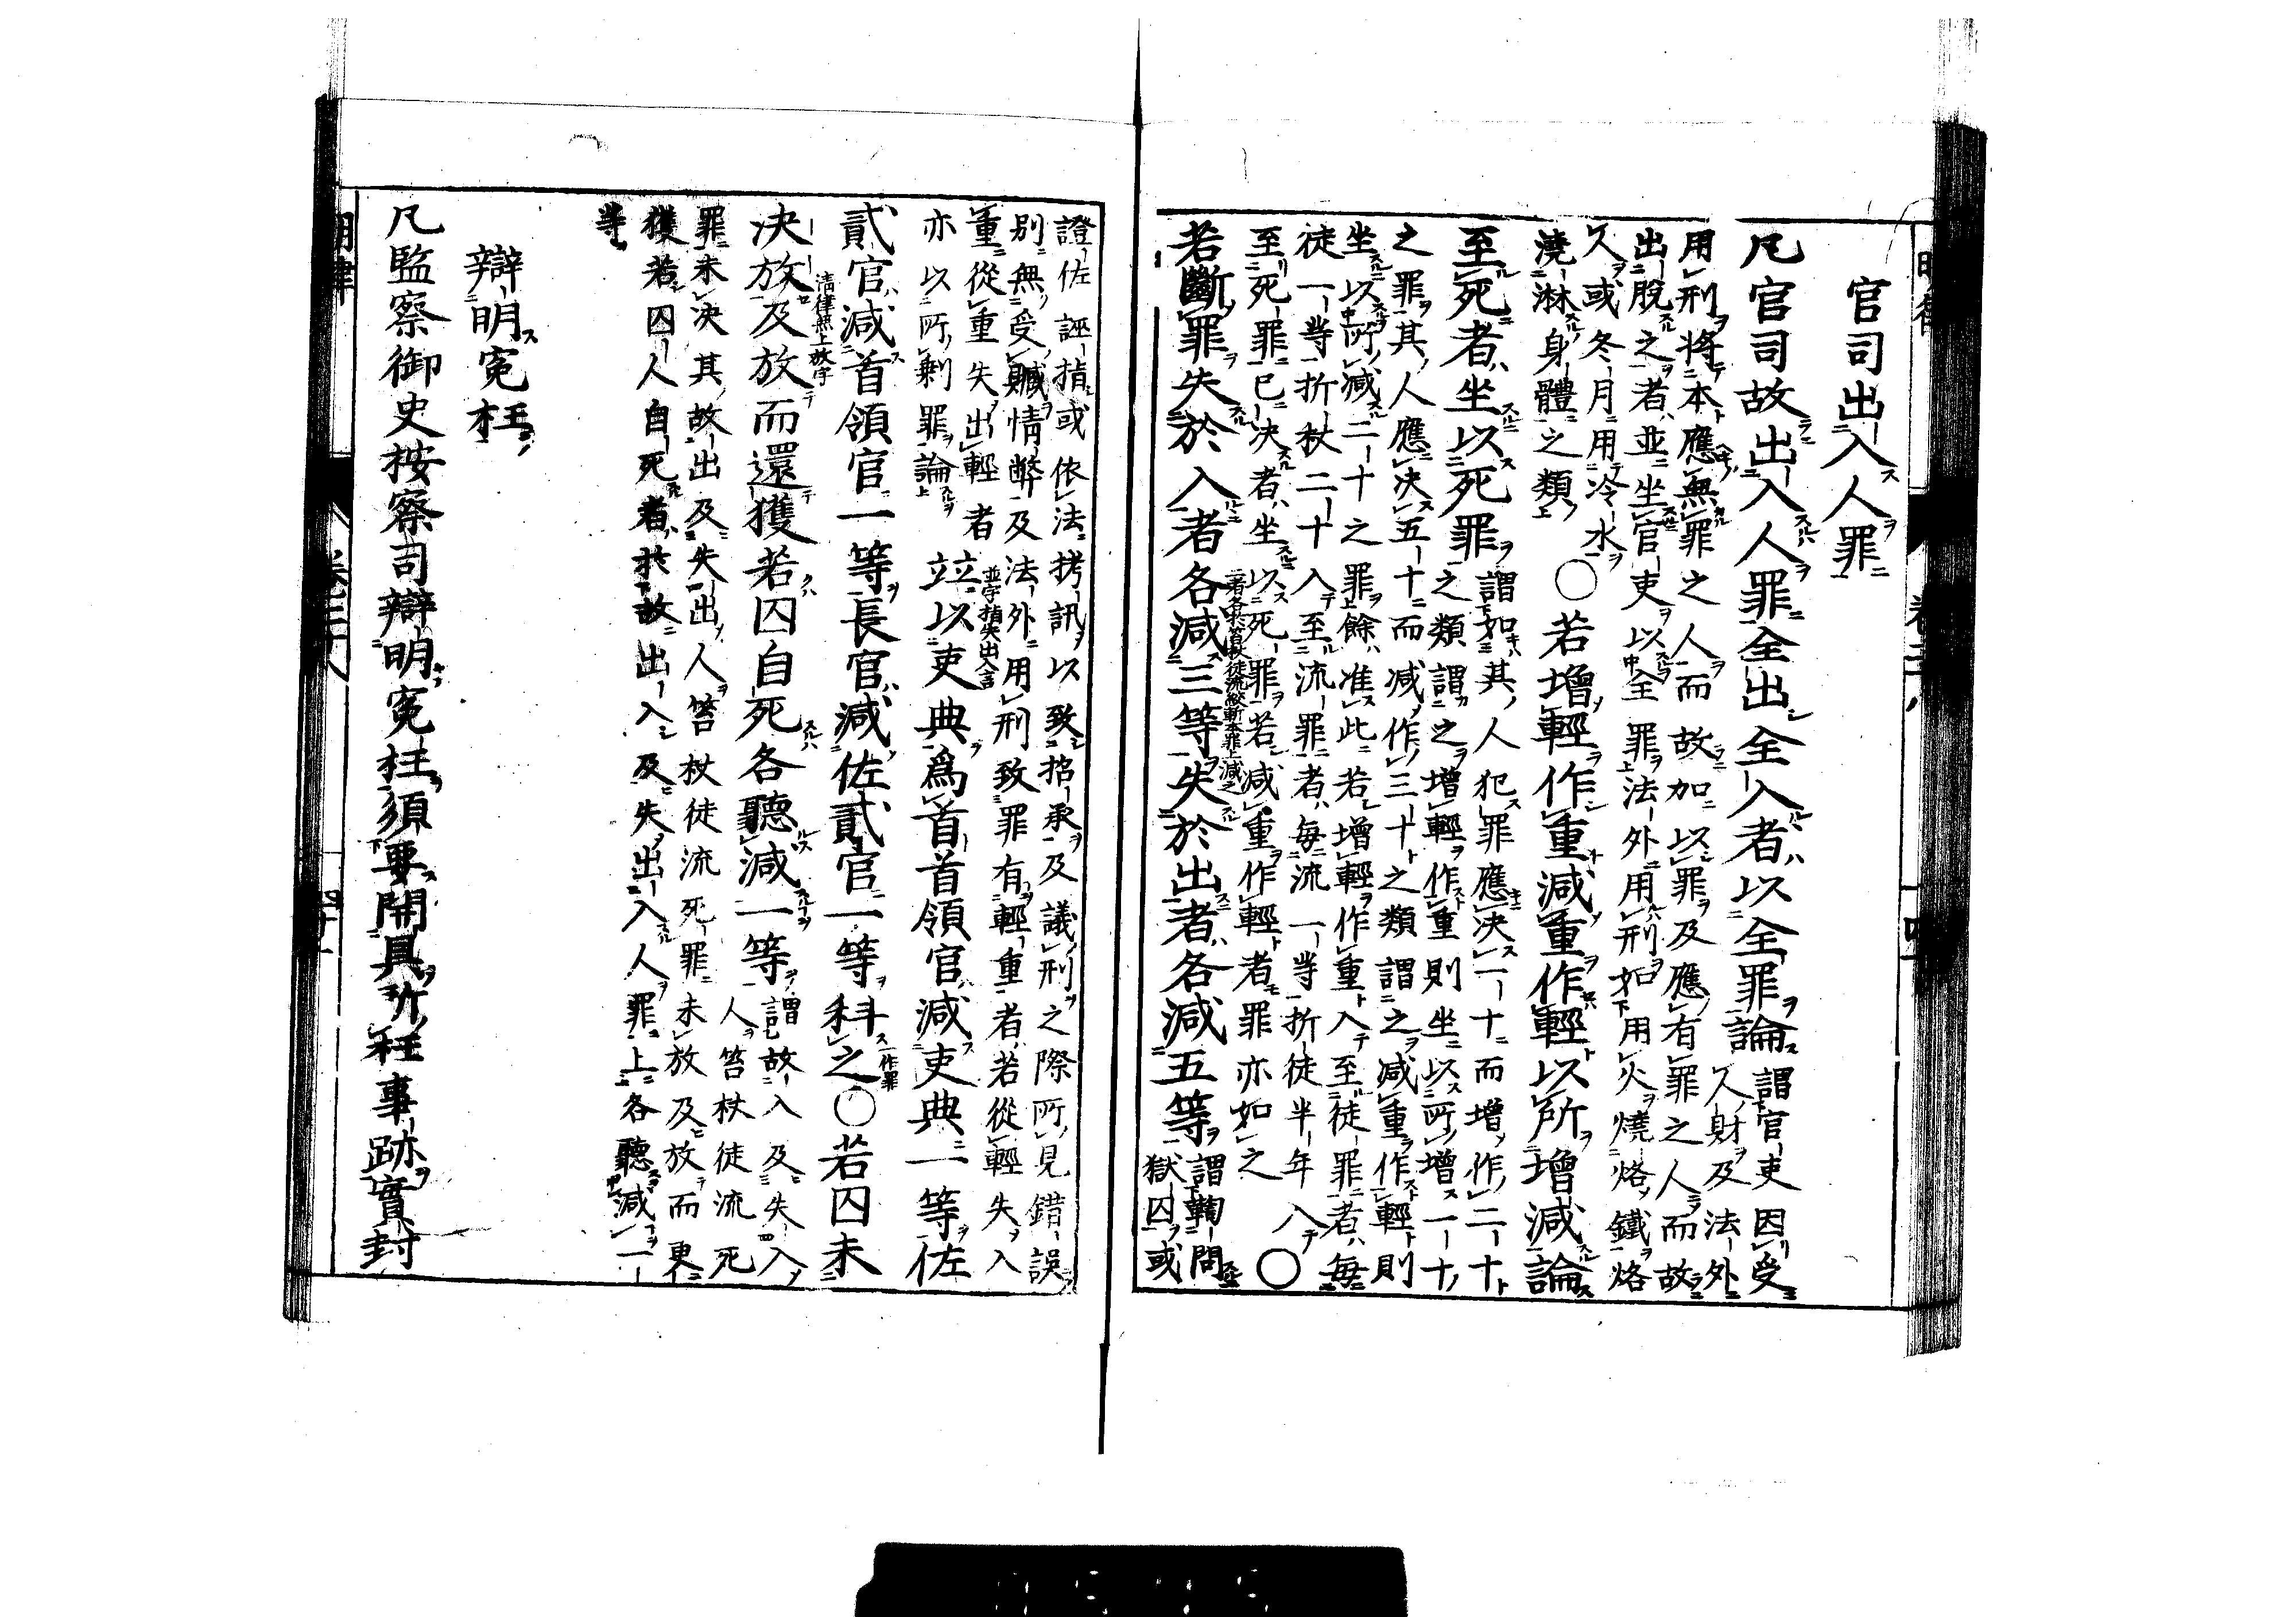 官司出入人罪
凡官司故出入人罪全出全入者以全罪論謂官吏因受
人財及法外
用刑將本應無罪之人而故加以罪及應有罪之人而故
出脫之者並坐官吏以全罪法外用刑如用火燒烙鐵烙
人或冬月用冷水
澆淋身體之類
○若增輕作重減重作輕以所增減論
至死者坐以死罪謂如其人犯罪應決一十而增作二十
之類謂之增輕作重則坐以所增一十
之罪其人應決五十而減作三十之類謂之減重作輕則
坐以所減二十之罪餘准此若增輕作重入至徒罪者每
徒一等折杖二十入至流罪者每流一等折徒半年入
至死罪已決者坐以死罪若減重作輕者罪亦如之
○
若斷罪失於入者各減三等失於出者各減五等謂鞫問
獄囚或
證佐誣指或依法拷訊以致招承及議刑之際所見錯誤
別無受贓情弊及法外用刑致罪有輕重者若從輕失入
重從重失出輕者
亦以所剩罪論
並以吏典爲首首領官減吏典一等佐
並字指失出入言
貳官減首領官一等長官減佐貳官一等科之○若囚未
一作罪
決放及放而還獲若囚自死各聽減一等謂故入及失入
清律無上放字
人笞杖徒流死
罪未決其故出及失出人笞杖徒流死罪未放及放而更
獲若囚人自死者於故出入及失出入人罪上各聽減一
等
辯明冤枉
凡監察御史按察司辯明冤枉須要開具所枉事跡實封
明律